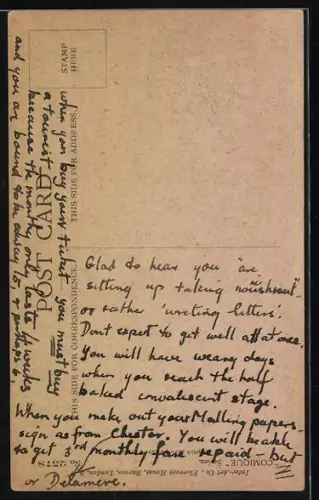 STAMP
HERE
POST CARD
THIS SIDE FOR CORRESPONDENCE.
THIS SIDE FOR ADDRESS.
"COMIQUE" Series.
Inter-Art Co., Florence House, Barnes, London,
No. 2578
Glad to hear you are
sitting up taking nourishment
or rather 'writing letters'.
Dont expect to get well all at once.
You will have weary days
when you reach the half
baked convalescent stage.
When you make out your Malling papers
sign as from Chester. You will be able
to get 3rd monthly fare repaid - but
or Delamere.
when you buy your ticket you must buy
a tourist
because the monthly only lasts 4 weeks
and you are bound to be away 5, perhaps 6,